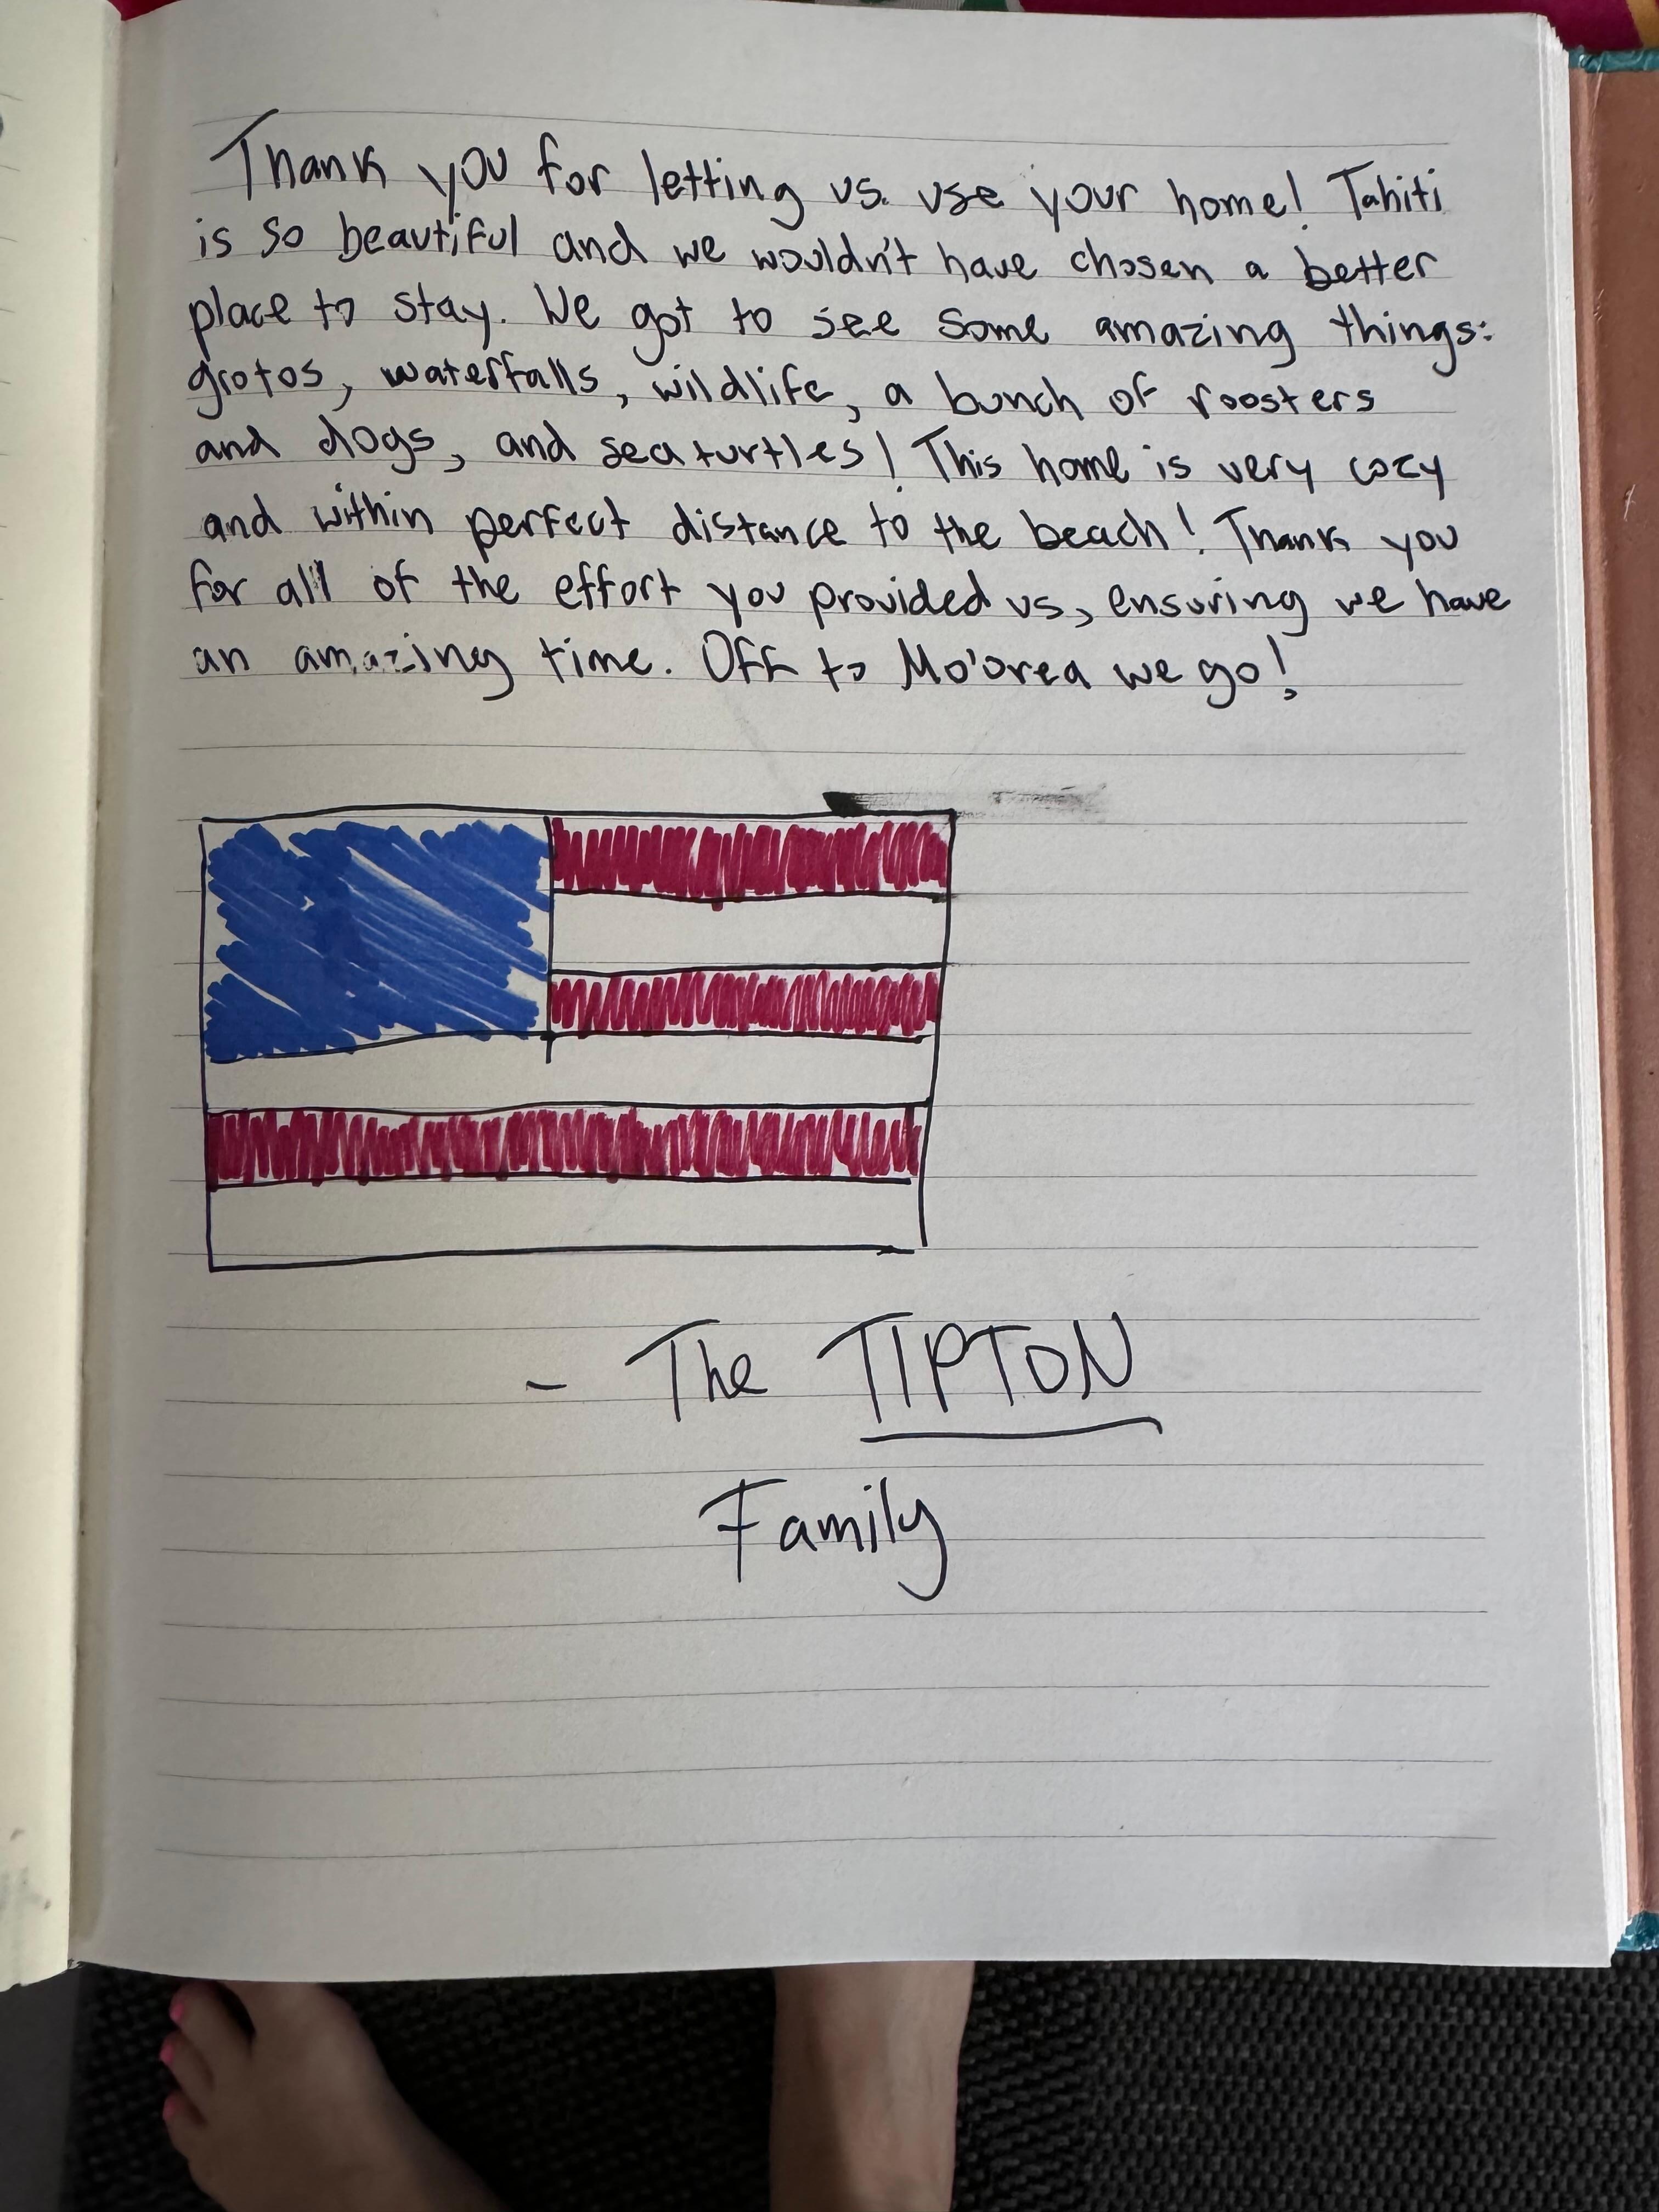 Thank you for letting us use your home! Tahiti
is so beautiful and we wouldn't have chosen a better
place to stay. We got to see some amazing things:
grotos, waterfalls, wildlife, a bunch of roosters
and dogs, and sea turtles! This home is very cozy
and within perfect distance to the beach! Thank you
for all of the effort you provided us, ensuring we have
an amazing time. Off to Mo'orea we go!
- The TIPTON
Family